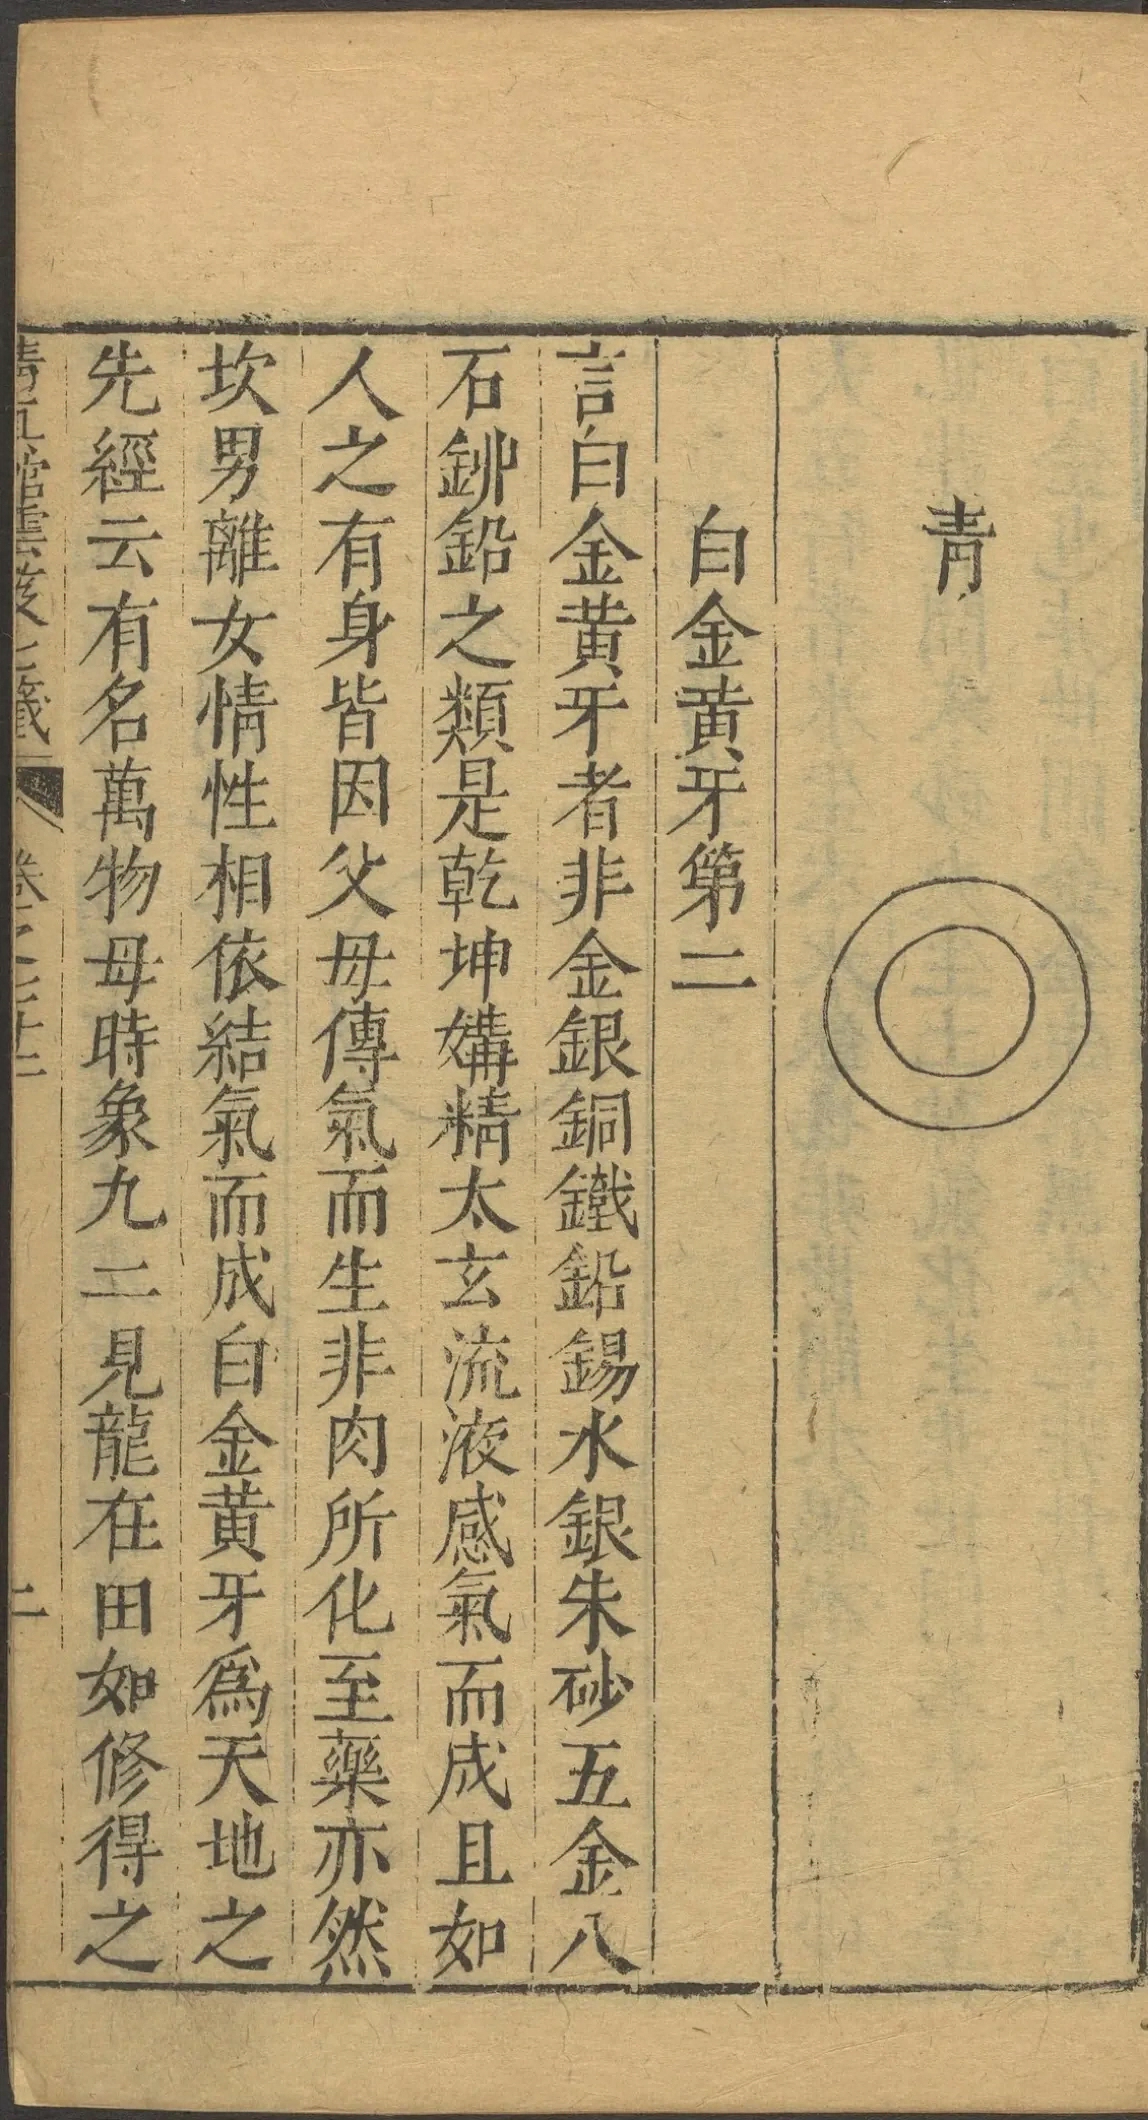 青
白金黄牙第二
言白金黄牙者非金銀銅鐵鉛錫水銀朱砂五金八
石鉚鉛之類是乾坤媾精太玄流液感氣而成且如
人之有身皆因父母傳氣而生非肉所化至藥亦然
坎男離女情性相依結氣而成白金黄牙爲天地之
先經云有名萬物母時象九二見龍在田如修得之